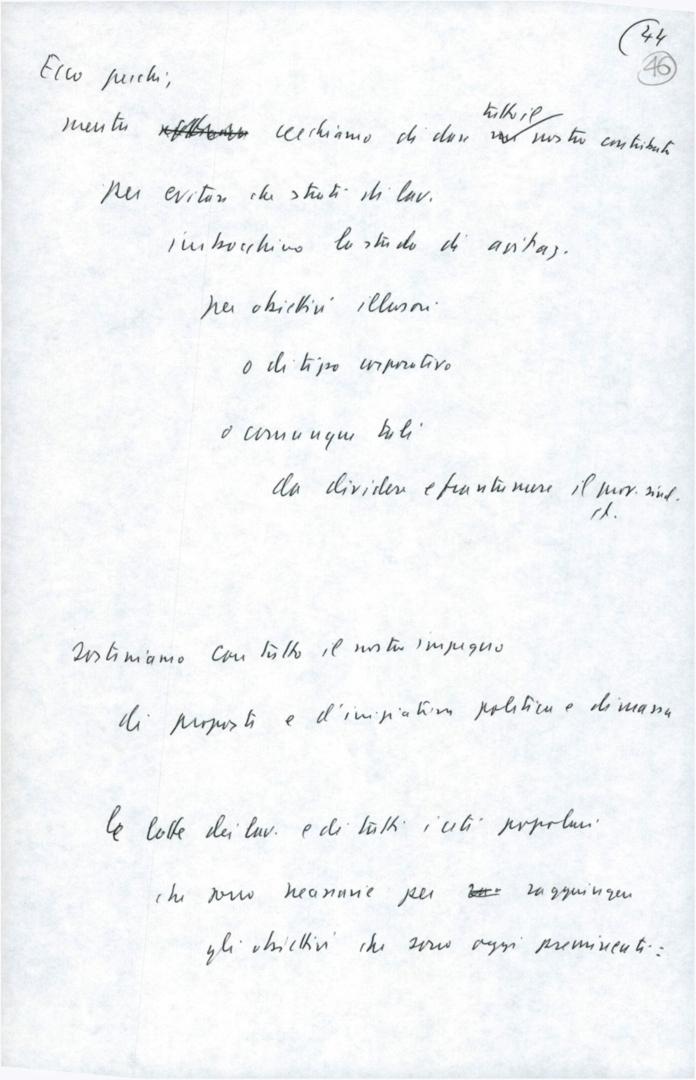 (44
46
Ecco perchè,
mentre cerchiamo di dare tutto il nostro contributo
per evitare che strati di lav.
imbocchino la strada di agitaz.
per obiettivi illusori
o di tipo corporativo
o comunque tali
da dividere e frantumare il mov. sind.
it.
sosteniamo con tutto il nostro impegno
di proposte e d'iniziativa politica e di massa
le lotte dei lav. e di tutti i ceti popolari
che sono necessarie per raggiungere
gli obiettivi che sono oggi preminenti: